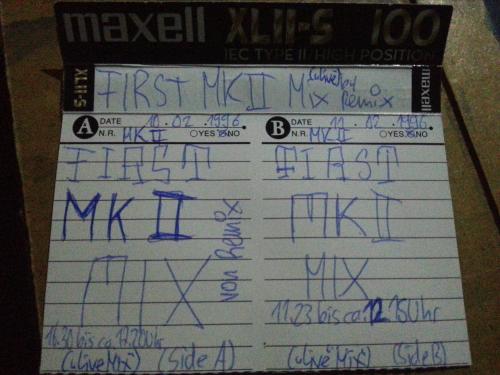 maxell XLII-S 100
IEC TYPE II/HIGH POSITION
XLII-S
FIRST MK II Mix ("Live") bei Remix
maxell
A DATE 10.02.1996.
N.R. YES NO
MK II
FIRST
MK II
MIX
von Remix
16.30 bis ca. 17.20 Uhr
("Live Mix") (Side A)
B DATE 11.02.1996.
N.R. YES NO
MK II
FIRST
MK II
MIX
11.23 bis ca. 12.15 Uhr
("Live Mix") (Side B)